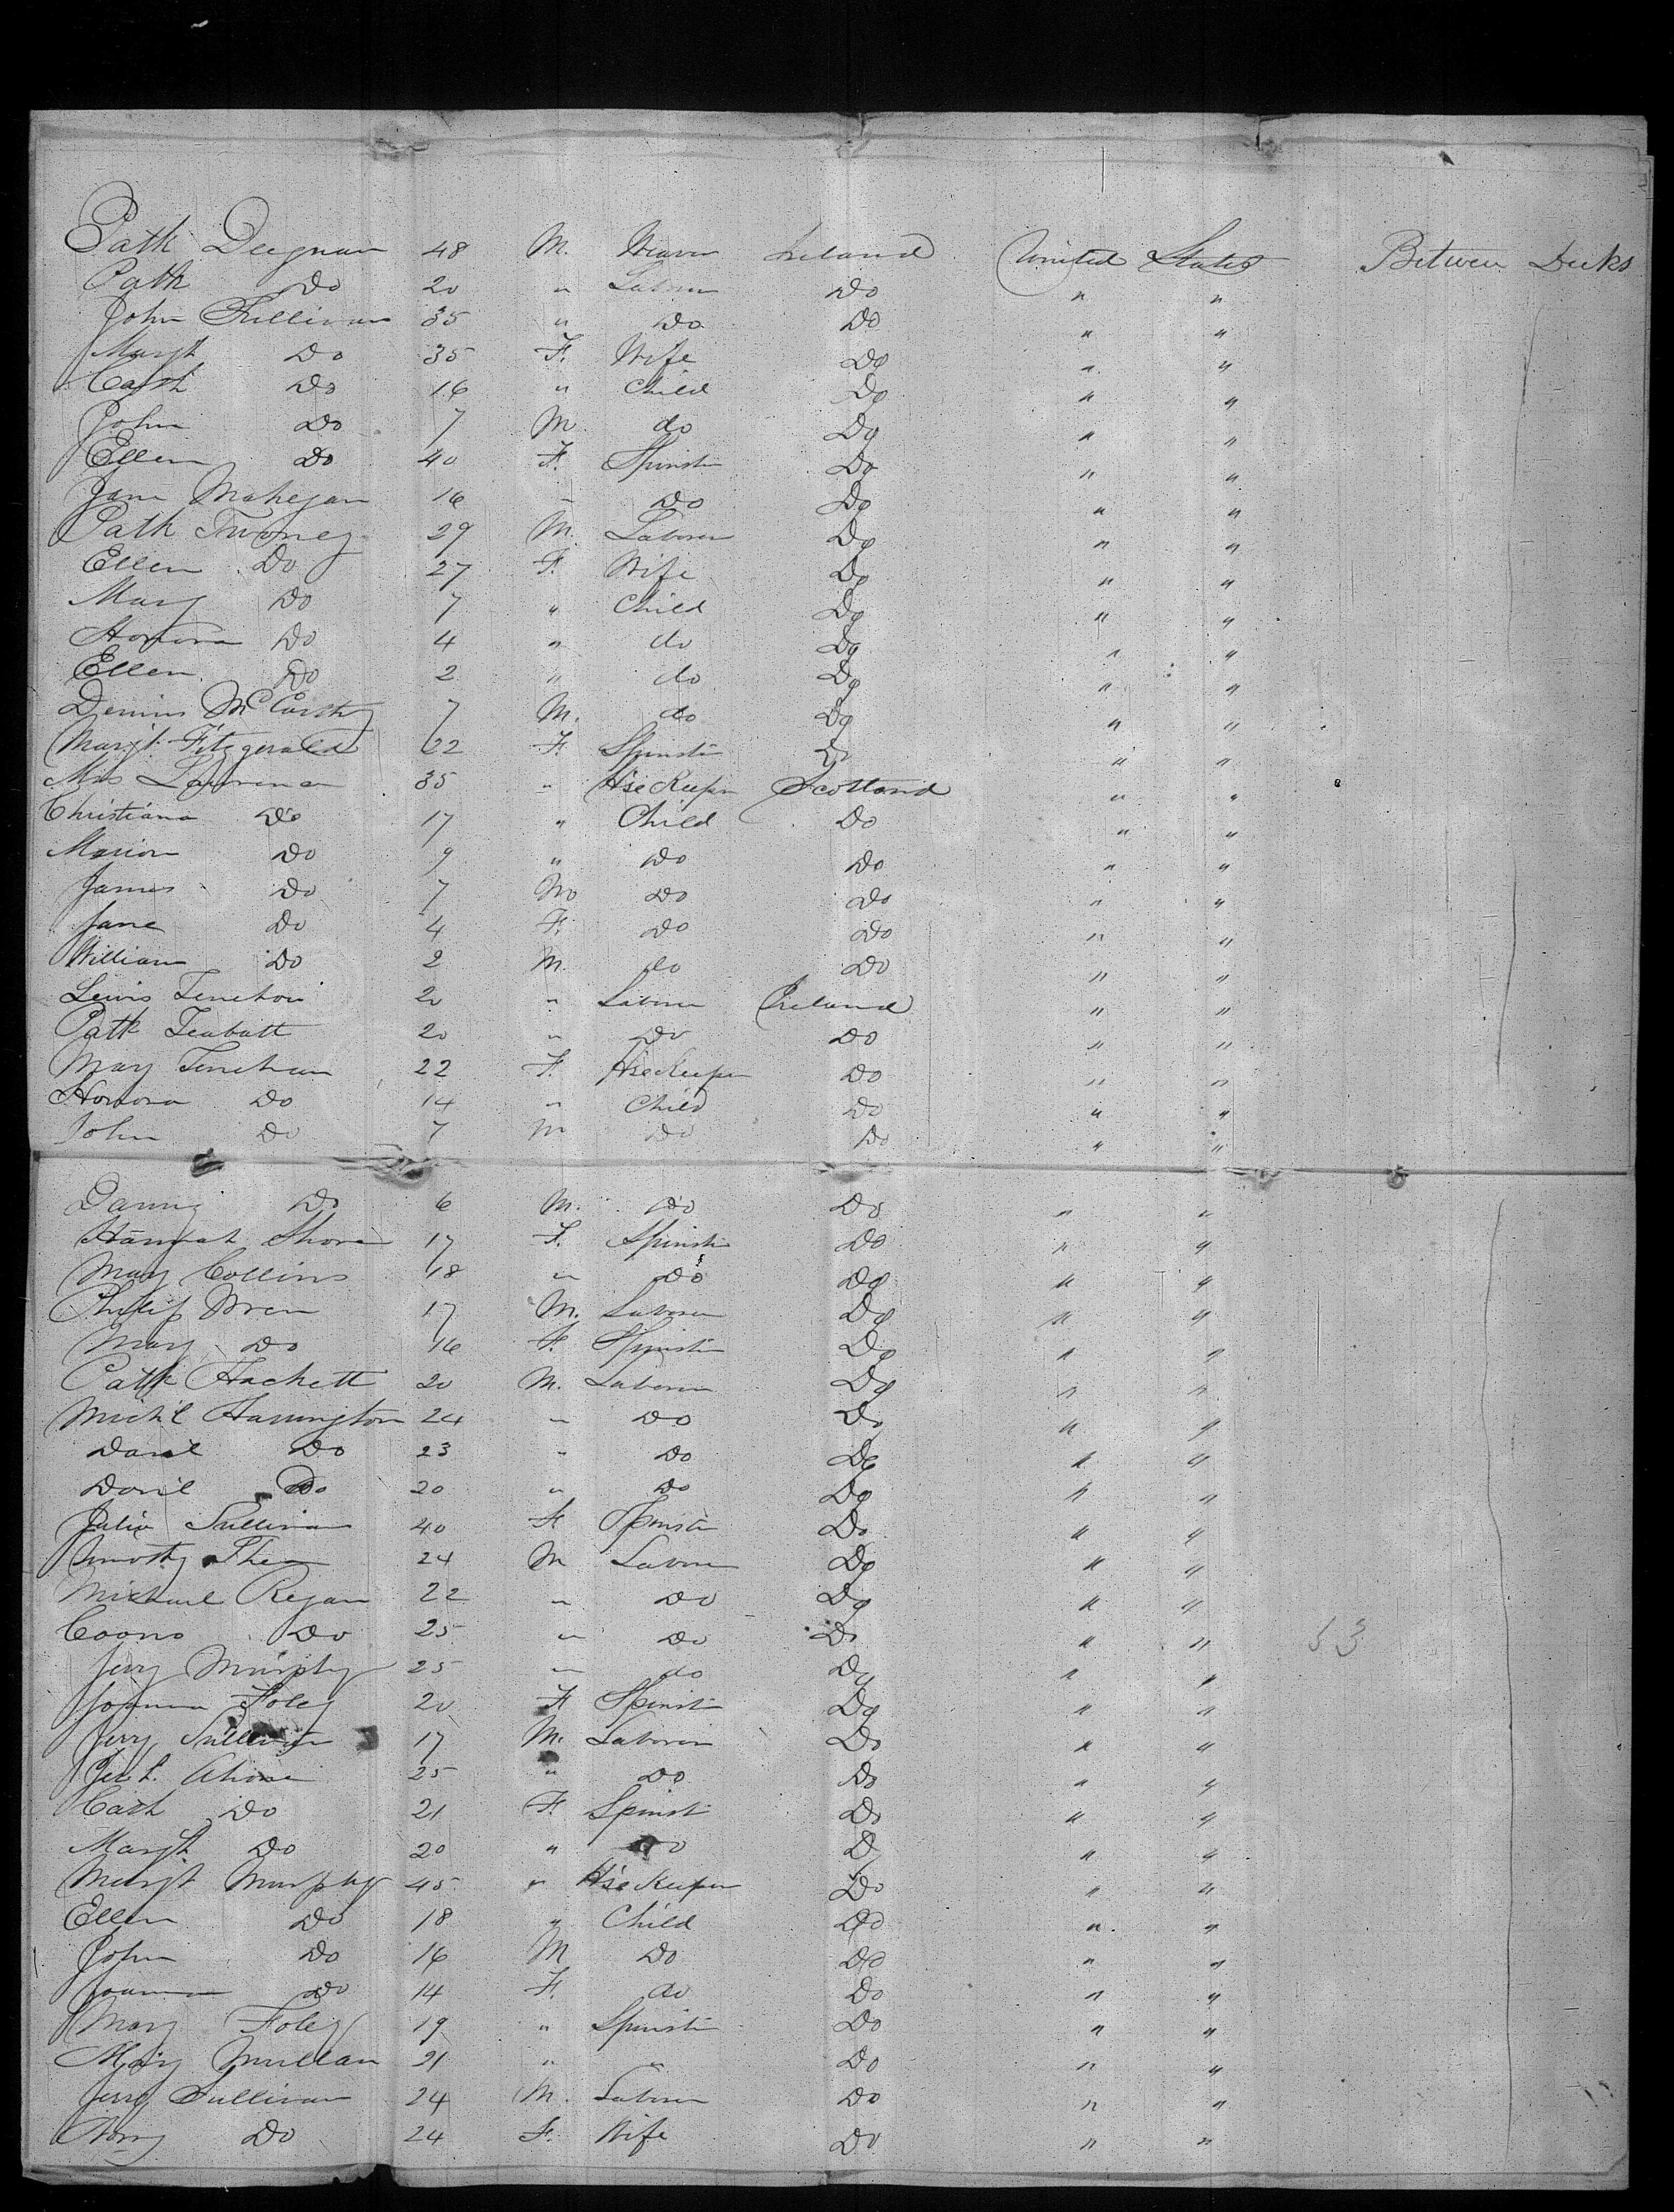 Patk Deegnan 48 M. Weaver Ireland United States Between Decks
Patk Do 20 " Laborer Do " "
John Sullivan 35 " Do Do " "
Margt Do 35 F. Wife Do " "
Cath Do 16 " Child Do " "
John Do 7 M. do Do " "
Ellen Do 40 F. Spinstr Do " "
Jane Mahegan 16 " Do Do " "
Patk Twomey 29 M. Laborer Do " "
Ellen Do 27 F. Wife Do " "
Mary Do 7 " Child Do " "
Honora Do 4 " do Do " "
Ellen Do 2 " do Do " "
Dennis McCarthy 7 M. do Do " "
Margt Fitzgerald 22 F. Spinstr Do " "
Mrs Lawrence 35 " Hse Keeper Scotland " "
Christiana Do 17 " Child Do " "
Marion Do 9 " Do Do " "
James Do 7 M Do Do " "
Jane Do 4 F. Do Do " "
William Do 2 M. do Do " "
Lewis 20 " Laborer Ireland " "
Patk 20 " Do Do " "
Mary Lenehan 22 F. Hse Keeper Do " "
Honora Do 14 " Child Do " "
John Do 7 M Do Do " "
Danny Do 6 M. Do Do " "
Hannah Shora 17 F. Spinstr Do " "
Mary Collins 18 " Do Do " "
Philip Wren 17 M. Laborer Do " "
Mary Do 16 F. Spinstr Do " "
Patk Hackett 20 M. Laborer Do " "
Michl Harrington 24 " Do Do " "
Danl Do 23 " Do Do " "
Danl Do 20 " Do Do " "
Julia Sullivan 40 F Spinstr Do " "
Timothy Shea 24 M Laborer Do " "
Michael Regan 22 " Do Do " "
Do 25 " Do Do " " 53
Jerry Murphy 25 " do Do " "
Joanna Foley 20 F Spinstr Do " "
Jerry Sullivan 17 M. Laborer Do " "
25 " Do Do " "
Cath Do 21 F. Spinstr Do " "
Margt Do 20 " Do Do " "
Margt Murphy 45 " Hse Keeper Do " "
Ellen Do 18 " Child Do " "
John Do 16 M Do Do " "
Joanna Do 14 F. do Do " "
Mary Foley 19 " Spinstr Do " "
Mary Mullan 21 " " Do " "
Jerry Sullivan 24 M. Laborer Do " "
Nory Do 24 F. Wife Do " "